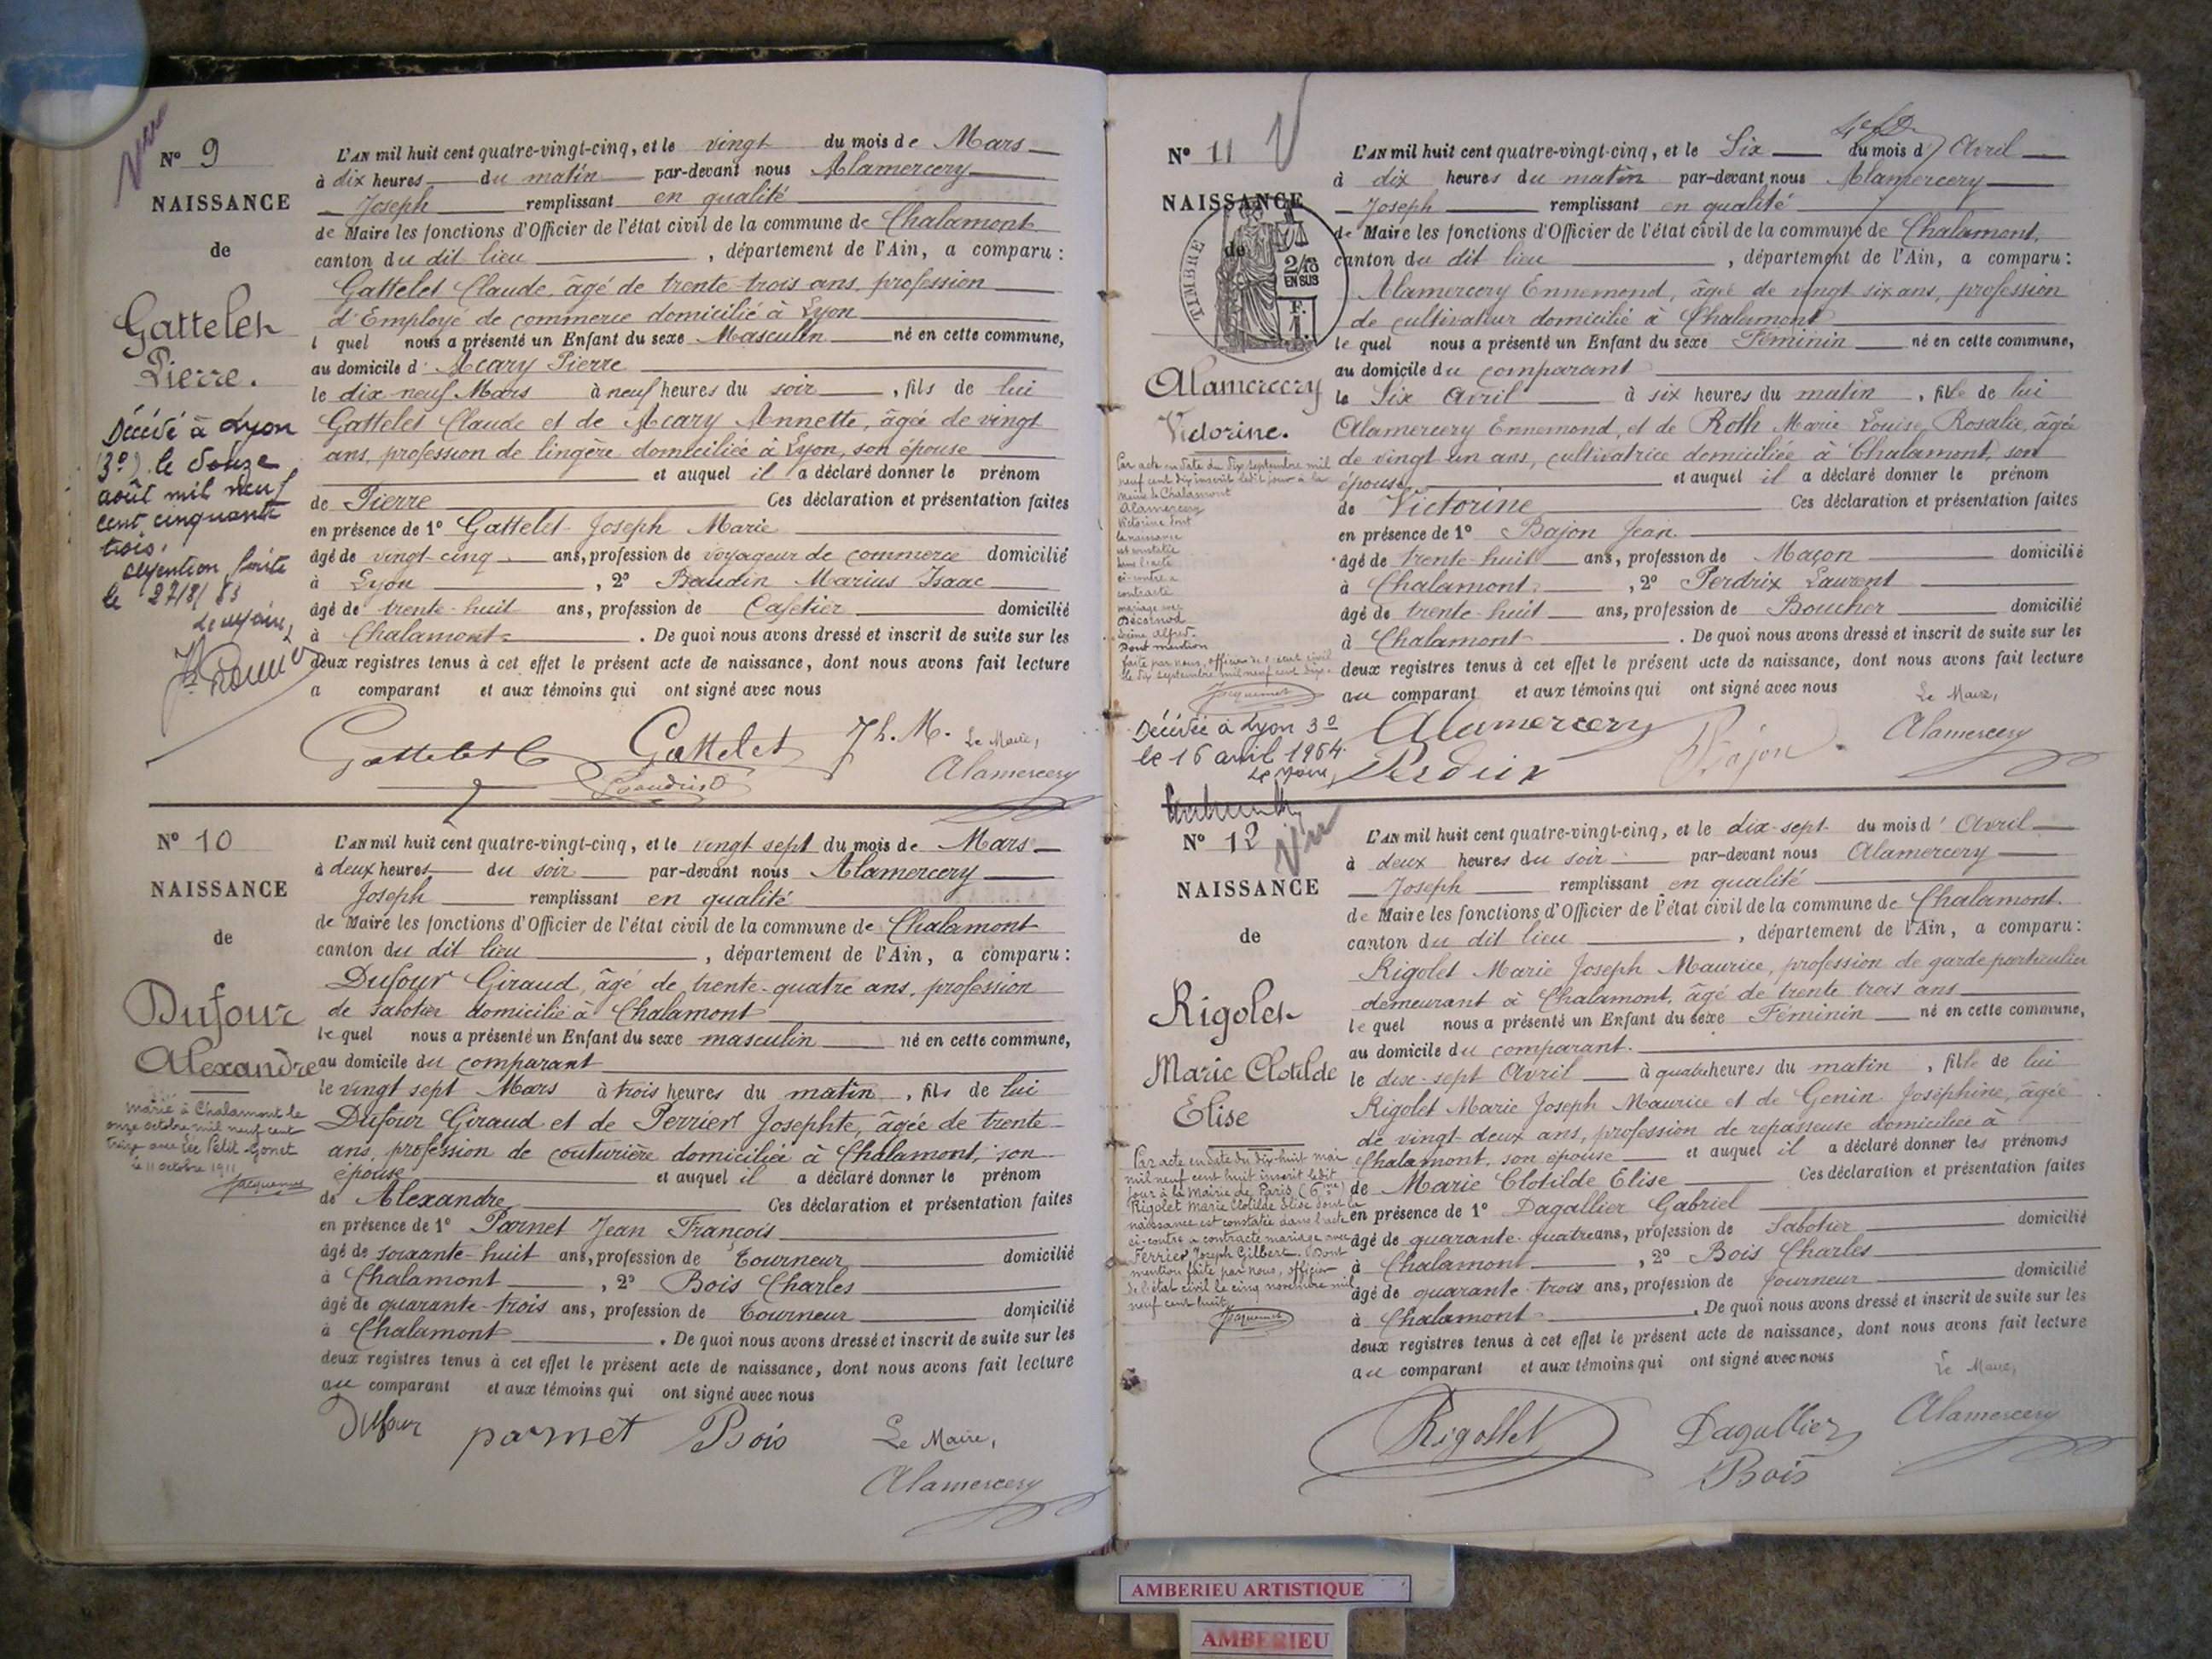 Vu
N° 9
NAISSANCE
de
Gattelet
Pierre.
Décédé à Lyon
(3°) le douze
août mil neuf
cent cinquante
trois.
le 27/8/53
L'AN mil huit cent quatre-vingt-cinq, et le vingt du mois de Mars
à dix heures du matin par-devant nous Alamercery
Joseph remplissant en qualité
de Maire les fonctions d'Officier de l'état civil de la commune de Chalamont
canton du dit lieu , département de l'Ain, a comparu :
Gattelet Claude, âgé de trente-trois ans, profession
d'Employé de commerce domicilié à Lyon
l quel nous a présenté un Enfant du sexe Masculin né en cette commune,
au domicile d' Acary Pierre
le dix-neuf Mars à neuf heures du soir , fils de lui
Gattelet Claude et de Acary Annette, âgée de vingt
ans, profession de lingère domiciliée à Lyon, son épouse
et auquel il a déclaré donner le prénom
de Pierre Ces déclaration et présentation faites
en présence de 1° Gattelet Joseph Marie
âgé de vingt-cinq ans, profession de voyageur de commerce domicilié
à Lyon , 2° Beaudin Marius Isaac
âgé de trente-huit ans, profession de Cafetier domicilié
à Chalamont . De quoi nous avons dressé et inscrit de suite sur les
deux registres tenus à cet effet le présent acte de naissance, dont nous avons fait lecture
a comparant et aux témoins qui ont signé avec nous
Gattelet C Gattelet Jh. M. Le Maire,
Beaudin Alamercery
N° 10
NAISSANCE
de
Dufour
Alexandre
Marié à Chalamont le
onze octobre mil neuf cent
avec Petit-Gonet
le 11 octobre 1911
Jacquemet
L'AN mil huit cent quatre-vingt-cinq, et le vingt sept du mois de Mars
à deux heures du soir par-devant nous Alamercery
Joseph remplissant en qualité
de Maire les fonctions d'Officier de l'état civil de la commune de Chalamont
canton du dit lieu , département de l'Ain, a comparu :
Dufour Giraud, âgé de trente-quatre ans, profession
de sabotier domicilié à Chalamont
le quel nous a présenté un Enfant du sexe masculin né en cette commune,
au domicile du comparant
le vingt sept Mars à trois heures du matin , fils de lui
Dufour Giraud et de Perrier Josephte, âgée de trente
ans, profession de couturière domiciliée à Chalamont, son
épouse et auquel il a déclaré donner le prénom
de Alexandre Ces déclaration et présentation faites
en présence de 1° Parnet Jean François
âgé de soixante-huit ans, profession de Tourneur domicilié
à Chalamont , 2° Bois Charles
âgé de quarante-trois ans, profession de Tourneur domicilié
à Chalamont . De quoi nous avons dressé et inscrit de suite sur les
deux registres tenus à cet effet le présent acte de naissance, dont nous avons fait lecture
au comparant et aux témoins qui ont signé avec nous
Dufour parnet Bois Le Maire,
Alamercery
N° 11
NAISSANCE
de
TIMBRE
2/10
EN SUS
F.
1.
Alamercery
Victorine.
Par acte en date du dix septembre mil
neuf cent dix inscrit ledit jour à la
mairie de Chalamont
Alamercery
Victorine dont
la naissance
est constatée
dans l'acte
ci-contre a
contracté
mariage avec
Alfred.
Dont mention
faite par nous, officier de l'état civil
le dix septembre mil neuf cent dix.
Jacquemet
Décédée à Lyon 3°
le 16 avril 1964.
Le Maire,
L'AN mil huit cent quatre-vingt-cinq, et le Six du mois d' Avril
à dix heures du matin par-devant nous Alamercery
Joseph remplissant en qualité
de Maire les fonctions d'Officier de l'état civil de la commune de Chalamont,
canton du dit lieu , département de l'Ain, a comparu :
Alamercery Ennemond, âgé de vingt six ans, profession
de cultivateur domicilié à Chalamont
le quel nous a présenté un Enfant du sexe Féminin né en cette commune,
au domicile du comparant
le Six Avril à six heures du matin , fille de lui
Alamercery Ennemond, et de Roth Marie Louise Rosalie, âgée
de vingt un ans, cultivatrice domiciliée à Chalamont, son
épouse et auquel il a déclaré donner le prénom
de Victorine Ces déclaration et présentation faites
en présence de 1° Bajon Jean
âgé de trente-huit ans, profession de Maçon domicilié
à Chalamont , 2° Perdrix Laurent
âgé de trente-huit ans, profession de Boucher domicilié
à Chalamont . De quoi nous avons dressé et inscrit de suite sur les
deux registres tenus à cet effet le présent acte de naissance, dont nous avons fait lecture
au comparant et aux témoins qui ont signé avec nous
Le Maire,
Alamercery Bajon Alamercery
Perdrix
N° 12
Vu
NAISSANCE
de
Rigolet
Marie Clotilde
Elise
Par acte en date du dix-huit mai
mil neuf cent huit inscrit ledit
jour à la Mairie de Paris (6me)
Rigolet Marie Clotilde Elise dont la
naissance est constatée dans l'acte
ci-contre a contracté mariage avec
Ferrier Joseph Gilbert. Dont
mention faite par nous, officier
de l'état civil le cinq novembre mil
neuf cent huit.
Jacquemet
L'AN mil huit cent quatre-vingt-cinq, et le dix-sept du mois d' Avril
à deux heures du soir par-devant nous Alamercery
Joseph remplissant en qualité
de Maire les fonctions d'Officier de l'état civil de la commune de Chalamont.
canton du dit lieu , département de l'Ain, a comparu :
Rigolet Marie Joseph Maurice, profession de garde particulier
demeurant à Chalamont, âgé de trente trois ans
le quel nous a présenté un Enfant du sexe Féminin né en cette commune,
au domicile du comparant.
le dix-sept Avril à quatre heures du matin , fille de lui
Rigolet Marie Joseph Maurice et de Genin Joséphine, âgée
de vingt-deux ans, profession de repasseuse domiciliée à
Chalamont, son épouse et auquel il a déclaré donner les prénoms
de Marie Clotilde Elise Ces déclaration et présentation faites
en présence de 1° Dagallier Gabriel
âgé de quarante-quatre ans, profession de Sabotier domicilié
à Chalamont , 2° Bois Charles
âgé de quarante-trois ans, profession de Tourneur domicilié
à Chalamont . De quoi nous avons dressé et inscrit de suite sur les
deux registres tenus à cet effet le présent acte de naissance, dont nous avons fait lecture
au comparant et aux témoins qui ont signé avec nous
Le Maire,
Rigollet Dagallier Alamercery
Bois
AMBERIEU ARTISTIQUE
AMBERIEU